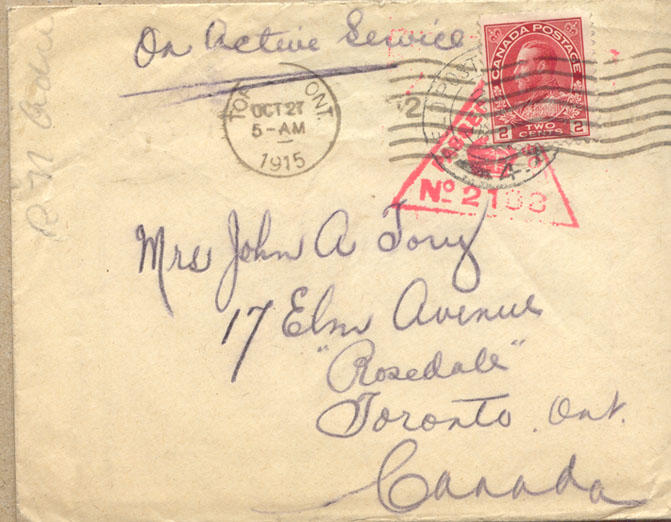 On Active Service
CANADA POSTAGE
2 TWO CENTS 2
ONT.
OCT 27
5-AM
1915
2
No 2133
Mrs John A Tory
17 Elm Avenue
"Rosedale"
Toronto. Ont.
Canada